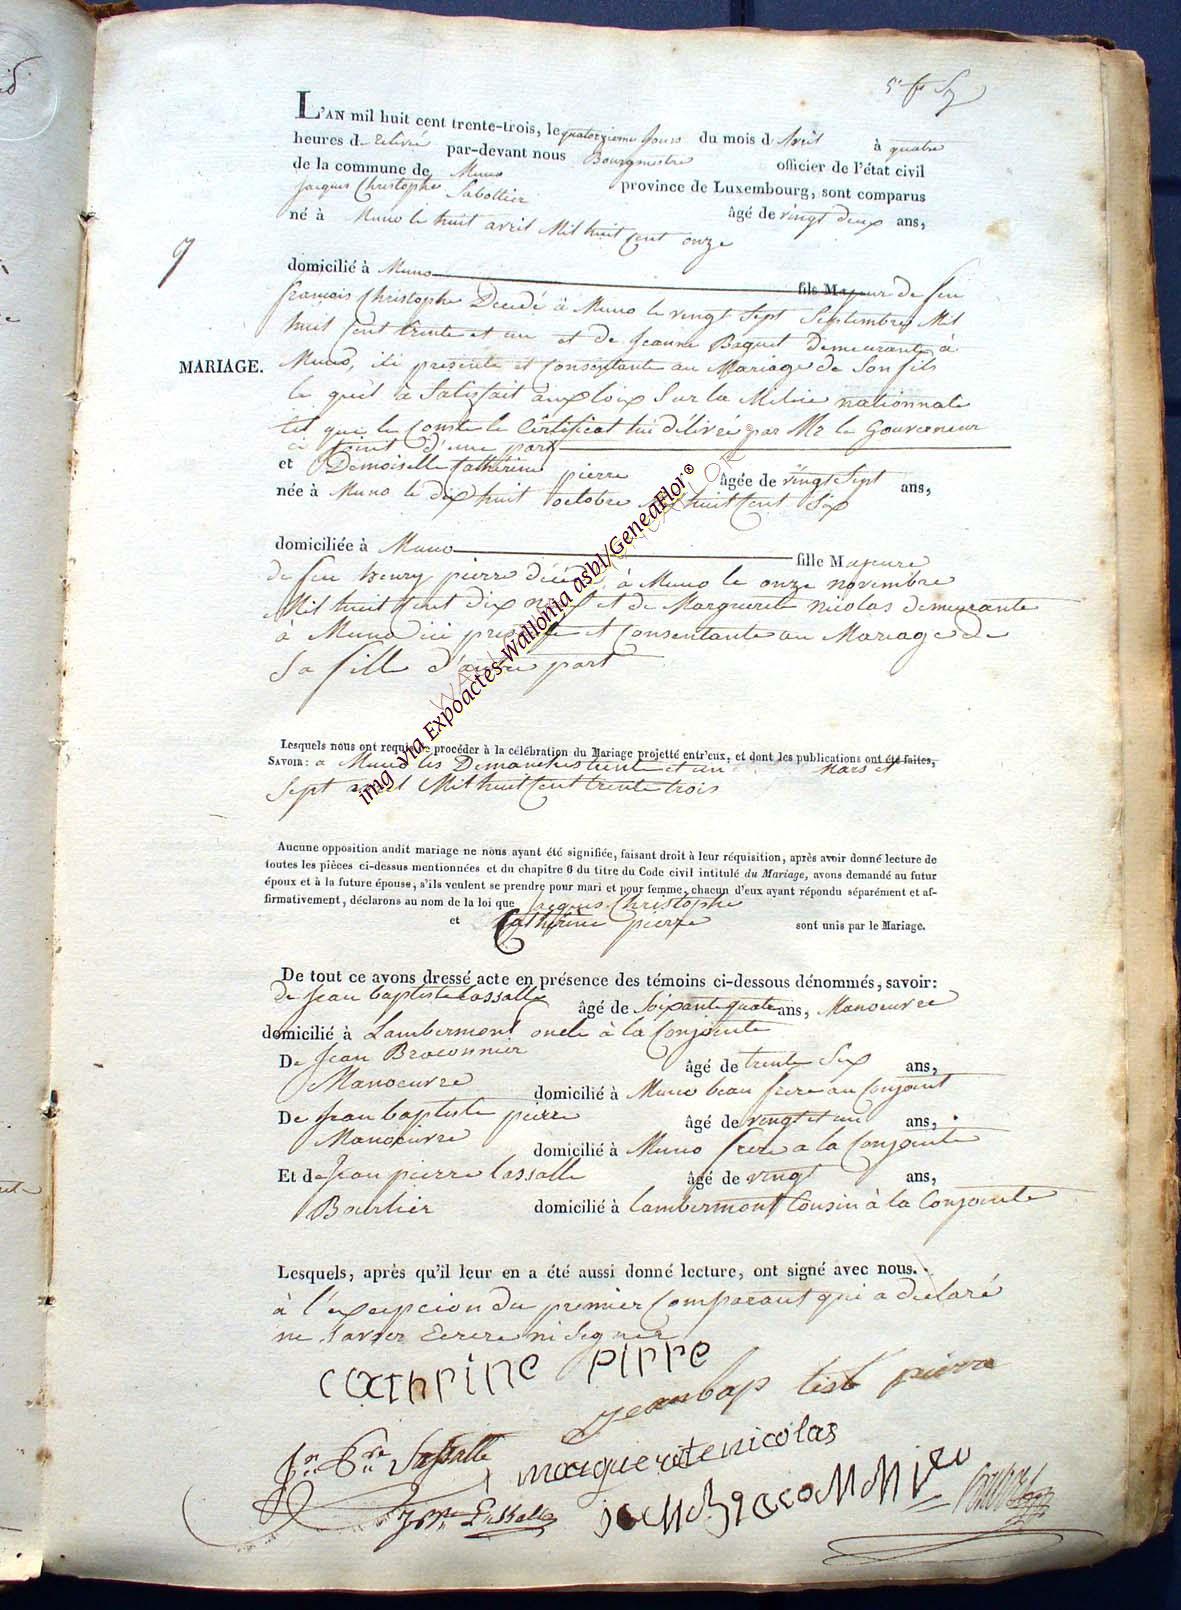 L'AN mil huit cent trente-trois, le quatorzieme Jours du mois d Avril à quatre
heures de Relevée par-devant nous Bourgmestre officier de l'état civil
de la commune de Muno province de Luxembourg, sont comparus
Jacques Christophe Sabottier âgé de vingt deux ans,
né à Muno le huit avril Mil huit Cent onze
domicilié à Muno fils Majeur de feu
françois Christophe Decedé à Muno le vingt Sept Septembre Mil
huit Cent trente et un et de Jeanne Baquet demeurante à
MARIAGE.
Muno, ici presente et Consentante au Mariage de Son fils
le quel à Satisfait aux loix Sur la Milice nationnale
tel que le Conste le Certificat lui délivré par Mr le Gouverneur
ci joint d'une part
et Demoiselle Catherine pierre âgée de vingt Sept ans,
née à Muno le dix huit octobre Mil huit Cent Six
domiciliée à Muno fille Majeure
de feu henry pierre décédé à Muno le onze novembre
Mil huit Cent dix neuf et de Marguerite nicolas demeurante
à Muno ici presente et Consentante au Mariage de
Sa fille d'autre part
Lesquels nous ont requis de procéder à la célébration du Mariage projetté entr'eux, et dont les publications ont été faites,
SAVOIR: a Muno les Dimanches trente et un Mars et
Sept avril Mil huit Cent trente trois
Aucune opposition audit mariage ne nous ayant été signifiée, faisant droit à leur réquisition, après avoir donné lecture de
toutes les pièces ci-dessus mentionnées et du chapitre 6 du titre du Code civil intitulé du Mariage, avons demandé au futur
époux et à la future épouse, s'ils veulent se prendre pour mari et pour femme, chacun d'eux ayant répondu séparément et af-
firmativement, déclarons au nom de la loi que Jacques Christophe
et Catherine pierre sont unis par le Mariage.
De tout ce avons dressé acte en présence des témoins ci-dessous dénommés, savoir:
de Jean baptiste Lassalle âgé de Soixante quatre ans, Manoeuvre
domicilié à Lambermont oncle à la Conjointe
De Jean Braconnier âgé de trente Six ans,
Manoeuvre domicilié à Muno beau frere au Conjoint
De Jean baptiste pierre âgé de vingt et un ans,
Manoeuvre domicilié à Muno frere a la Conjointe
Et de Jean pierre Lassalle âgé de vingt ans,
domicilié à Lambermont Cousin à la Conjointe
Lesquels, après qu'il leur en a été aussi donné lecture, ont signé avec nous.
à l'exception du premier Comparant qui a déclaré
ne savoir Ecrire ni Signer
cathrine pirre
jeanbap tist pierre
Jn Bte Lassalle
marguerite nicolas
J Pre Lassalle
img via Expoactes-Wallonia asbl/GeneaFlor®